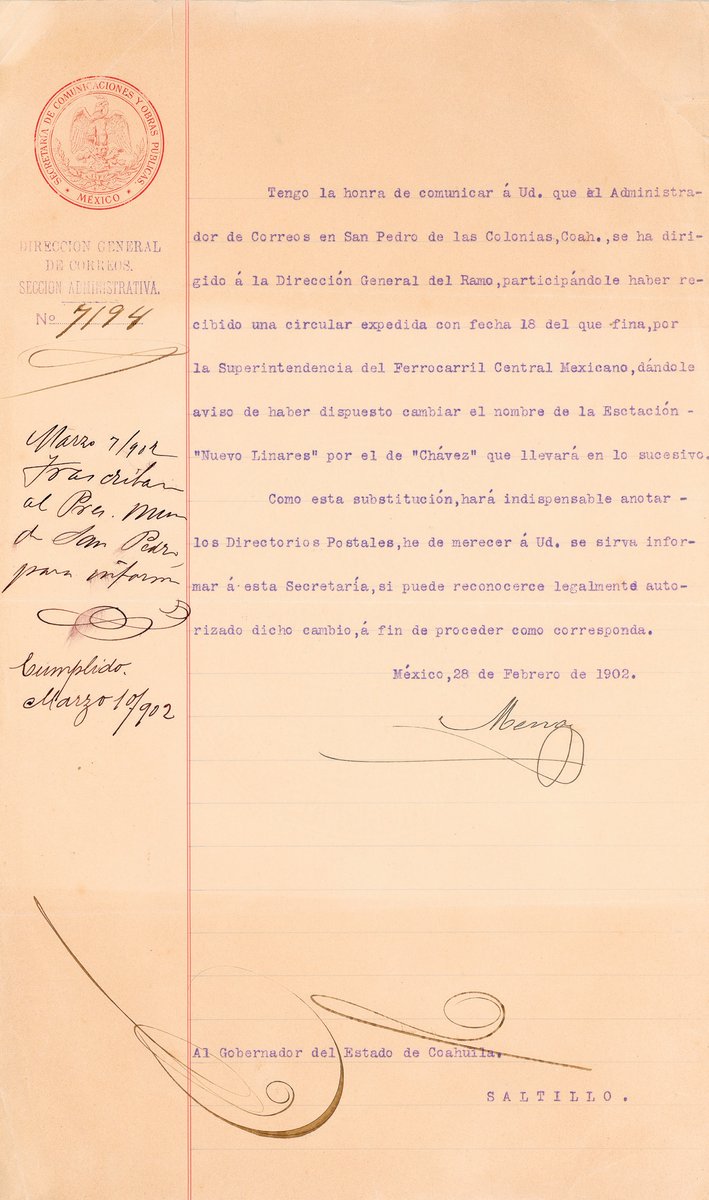 SECRETARIA DE COMUNICACIONES Y OBRAS PUBLICAS
• MÉXICO •
DIRECCION GENERAL
DE CORREOS.
SECCION ADMINISTRATIVA.
No 7194
Marzo 7/902
Trascriban
al Pres. Mun
de San Pedro
para inform
Cumplido.
Marzo 10/902
Tengo la honra de comunicar á Ud. que el Administra-
dor de Correos en San Pedro de las Colonias,Coah.,se ha diri-
gido á la Dirección General del Ramo,participándole haber re-
cibido una circular expedida con fecha 18 del que fina,por
la Superintendencia del Ferrocarril Central Mexicano,dándole
aviso de haber dispuesto cambiar el nombre de la Esctación -
"Nuevo Linares" por el de "Chávez" que llevará en lo sucesivo.
Como esta substitución,hará indispensable anotar -
los Directorios Postales,he de merecer á Ud. se sirva infor-
mar á esta Secretaría,si puede reconocerce legalmente auto-
rizado dicho cambio,á fin de proceder como corresponda.
México,28 de Febrero de 1902.
Mena
Al Gobernador del Estado de Coahuila.
SALTILLO.